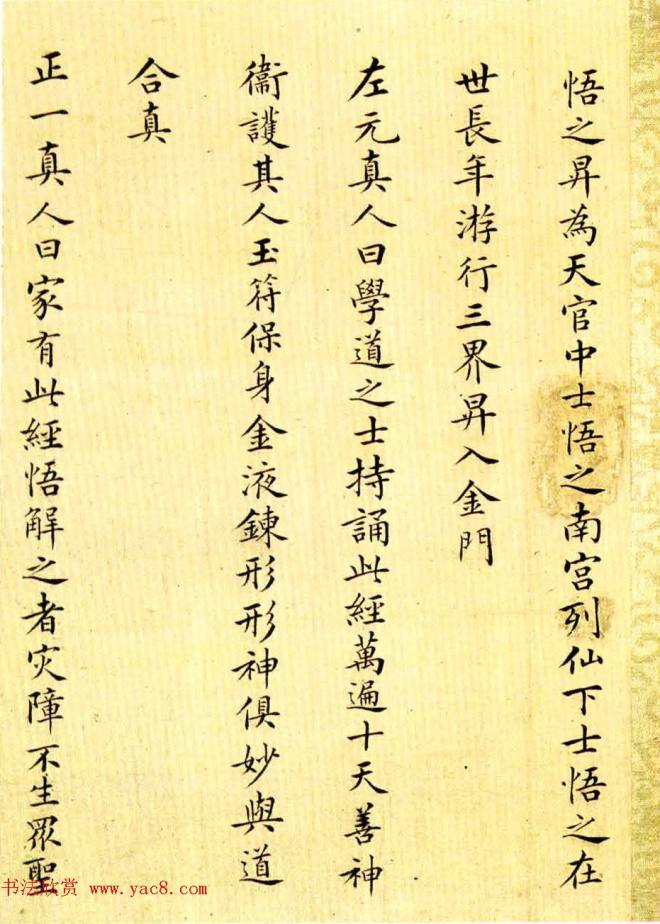 悟之昇為天官中士悟之南宮列仙下士悟之在
世長年游行三界昇入金門
左元真人曰學道之士持誦此經萬遍十天善神
衞護其人玉符保身金液鍊形形神俱妙與道
合真
正一真人曰家有此經悟解之者灾障不生眾聖
书法欣赏 www.yac8.com